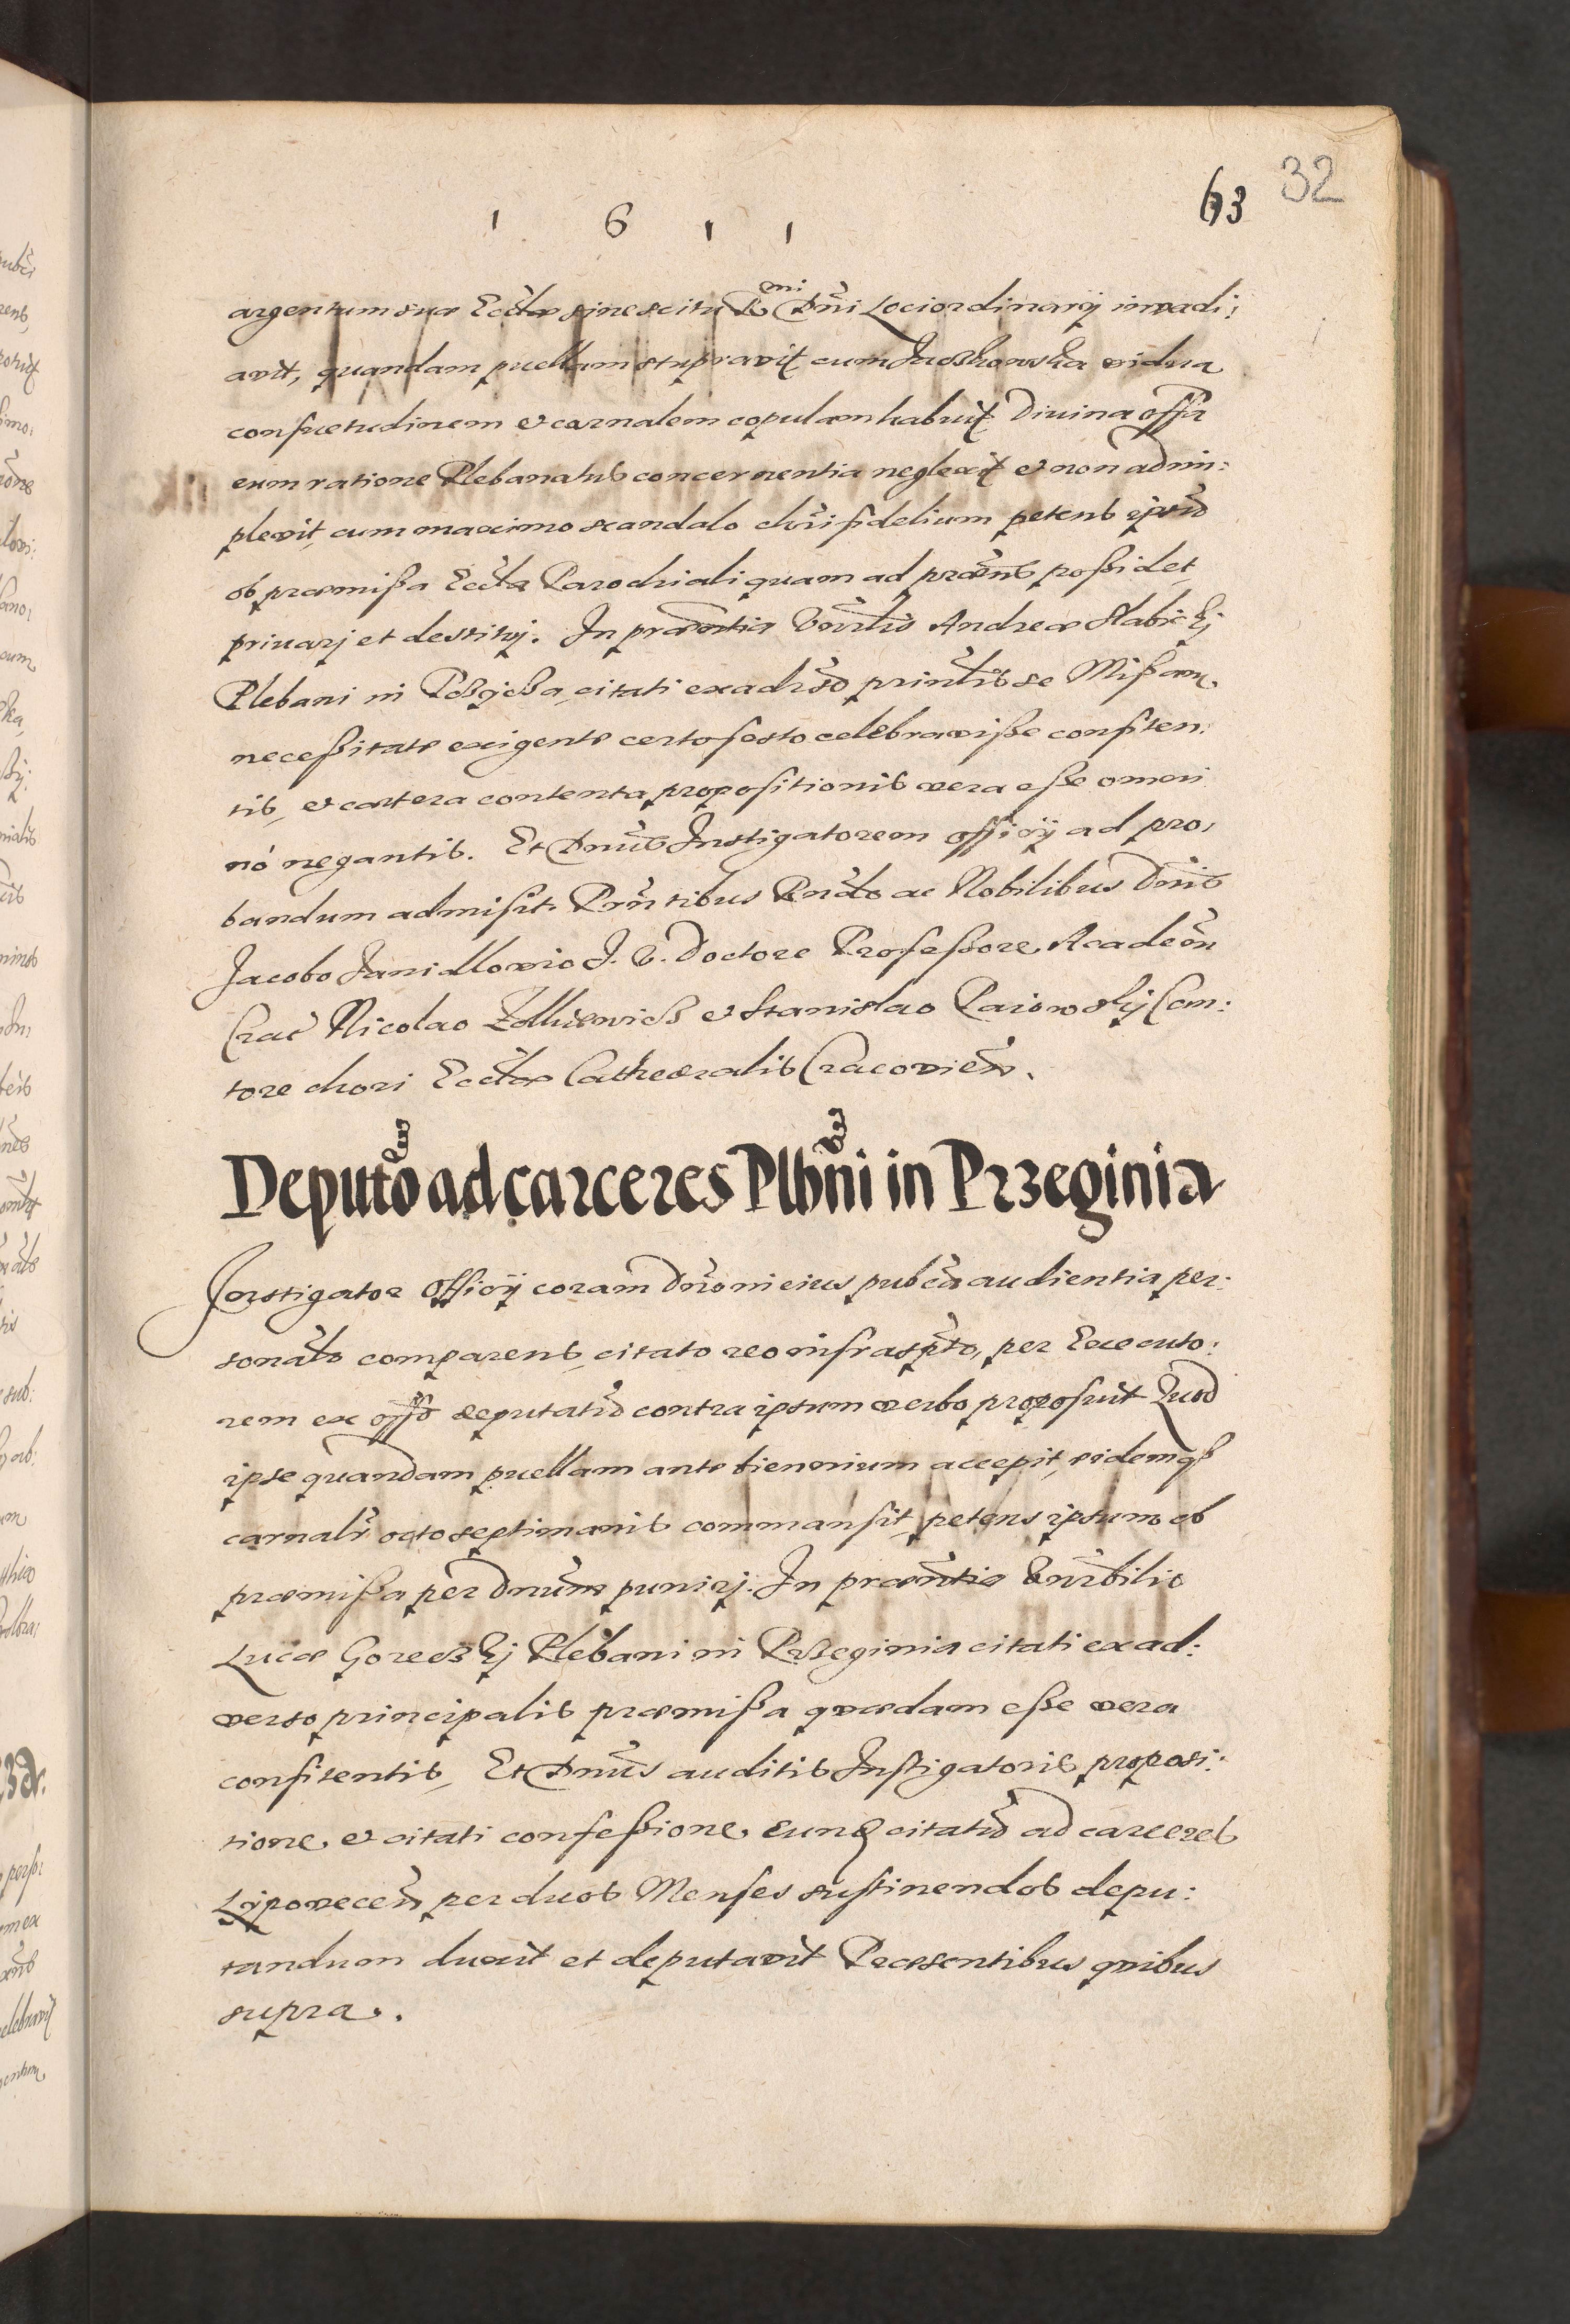 1 6 1 1
63 32
argentum suæ Eccłæ sine scitu R mi Dñi Loci ordinarij invadi:
avit, quandam puellam stupravit cum vidua
consuetudinem et carnalem copulam habuit, Divina offa
eum ratione Plebanatus concernentia neglexit et non adim:
plevit, cum maximo scandalo chrifidelium petens ipsum
ob præmißa Eccła Parochiali quam ad præns poßidet
privarj et destituj. In præntia Vñrlis Andreæ Slabickij
Plebani in citati ex adrso prinlis se Mißam
neceßitate exigente certo festo celebraviße confiten:
tis, et cætera contenta propositionis vera eße omni
nó negantis. Et Dnus Instigatorem officij ad pro,
bandum admisit. Prñtibus Rndo ac Nobilibus Dnis
Jacobo Janidlovio J. V. Doctore Profeßore Academ
Crac Nicolao et Stanislao Can:
tore chori Eccłæ Cathedralis Cracovien.
Deputo ad carceres Plbni in Przeginia
Instigator Officij coram Dno in eius publca audientia per:
sonalr comparens, citato reo infraspto, per Executo:
rem ex offo deputatum contra ipsum verbo proposuit Quod
ipse quandam puellam ante biennium accepit, eidemqß
carnalr octo septimanis commansit, petens ipsum ob
præmißa per Dnum punirj. In præntia Vnrbilis
Lucæ Goreczkij Plebani in Przeginia citati ex ad:
verso principalis præmißa quædam eße vera
confitentis, Et Dnus auditis Instigatoris proposi:
tione, et citati confeßione, eunq citatum ad carceres
Lipovecen per duos Menses sustinendos depu:
tandum duxit et deputavit Præsentibus quibus
supra.